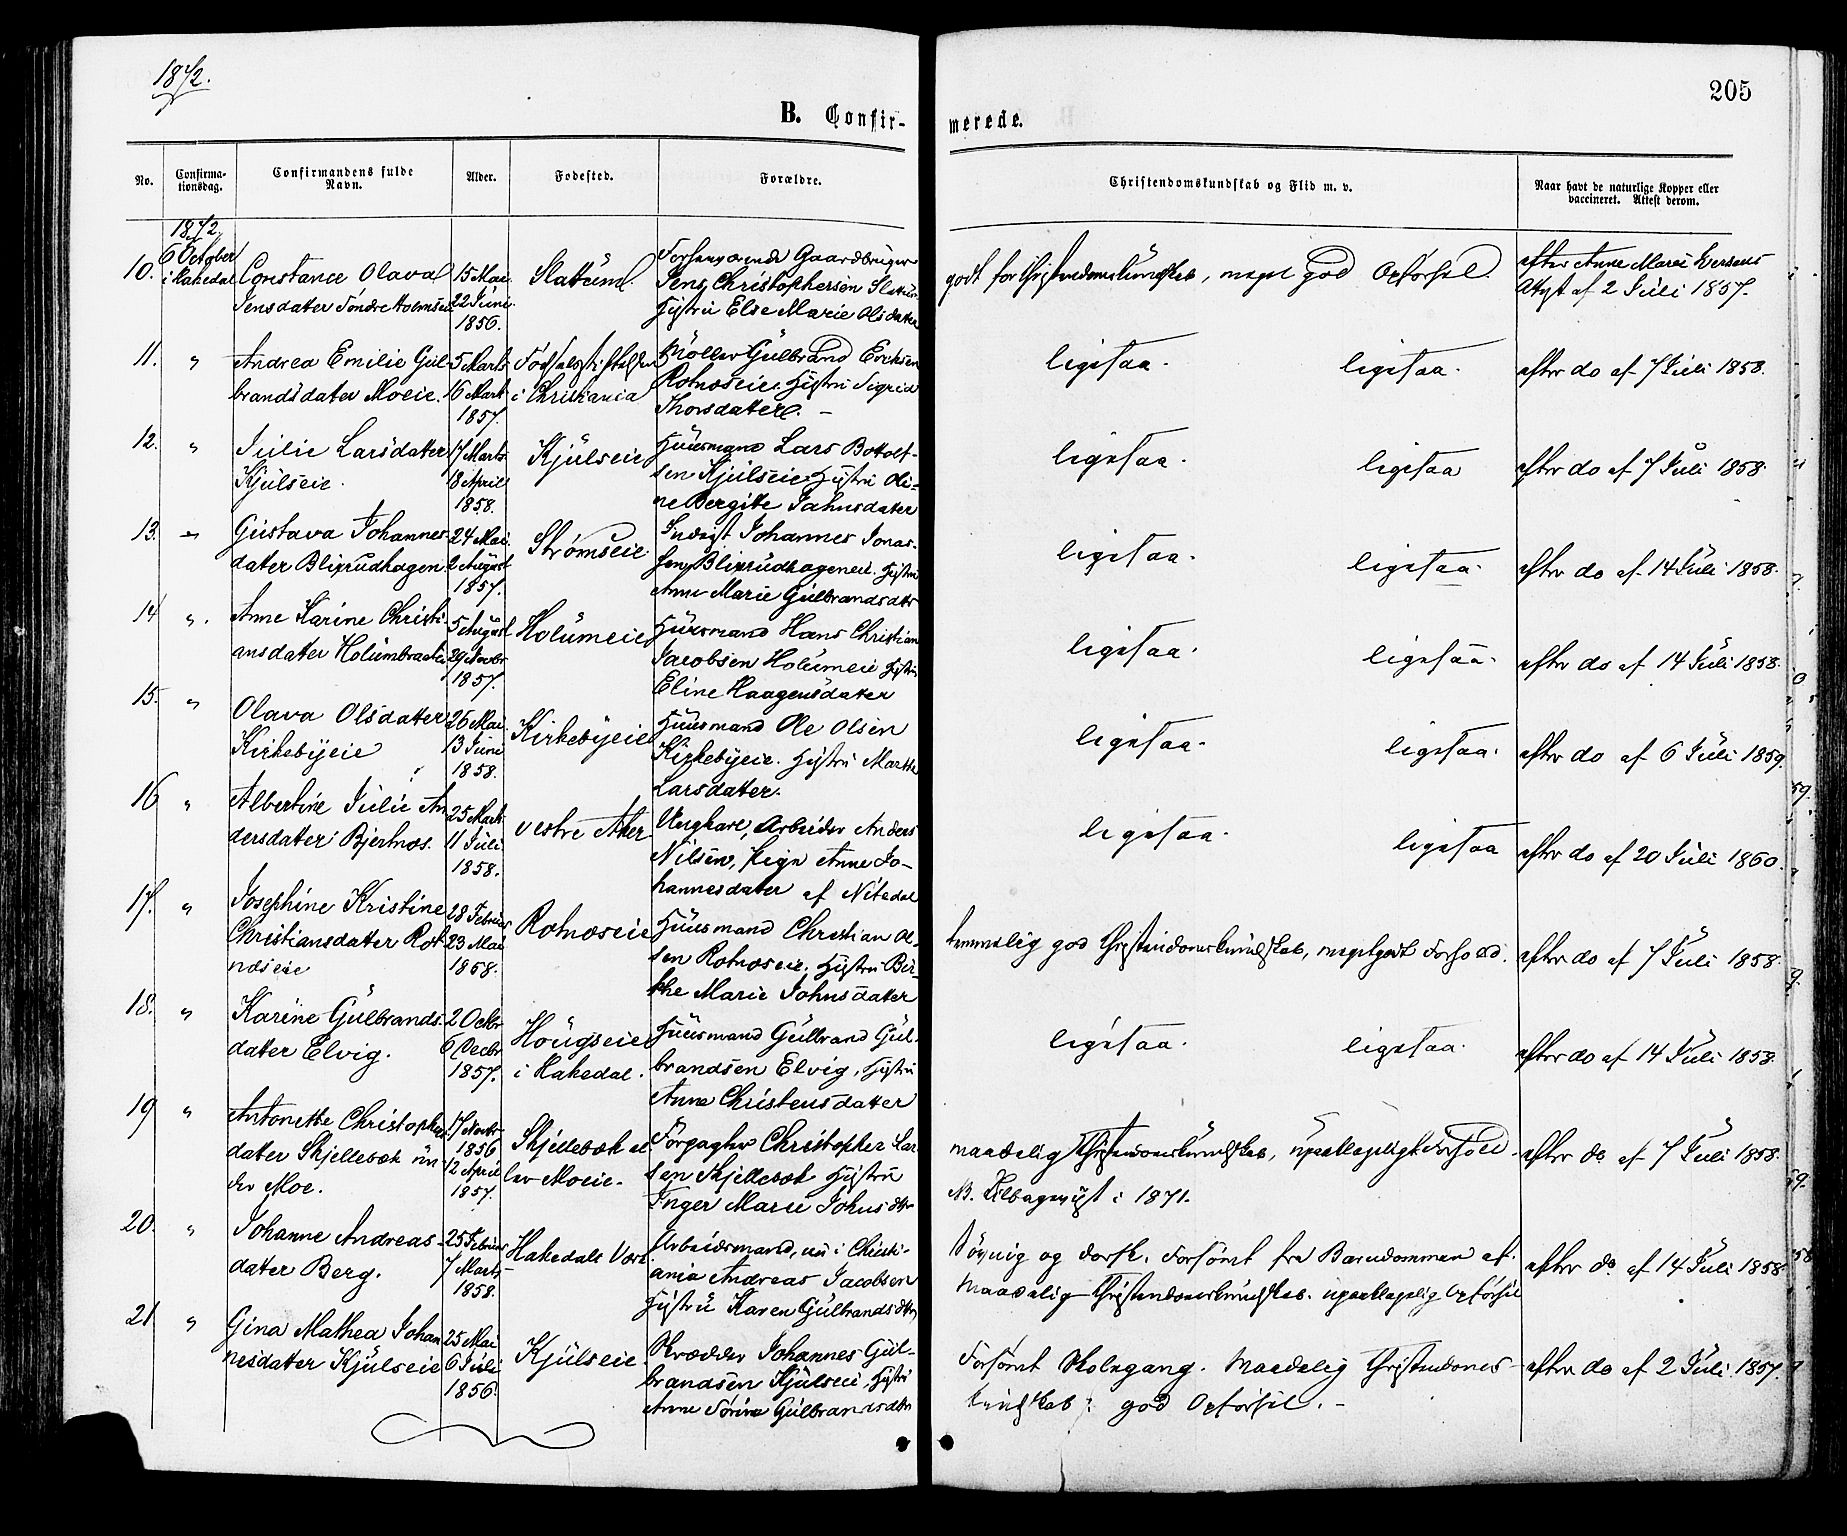 1872.
205
B. Confir-
merede.
No.
Confirma-
tionsdag.
Confirmandens fulde
Navn.
Alder.
Fødested.
Forældre.
Christendomskundskab og Flid m. v.
Naar havt de naturlige Kopper eller
vaccineret. Attest derom.
1872
6 October
i Hakedal
10.
Constance Olava
Jensdater Søndre
15 Mai
22 Juni
1856.
Slattum
Forhenværende Gaardbruger
Jens Christophersen Slattum
Hustru Else Marie Olsdatter
godt for Christendomskundskab, meget god Opførsel.
efter Anne Marie Iversens
Attest af 2 Juli 1857.
11.
"
Andrea Emilie Gul-
brandsdater Moeie.
5 Marts
16 Marts
1857.
Fødselsstiftelsen
i Christiania
Møller Gulbrand Eriksen
Rotnæseie. Hustru Sigrid
Thorsdatter. -
ligesaa. ligesaa.
efter do af 7 Juli 1858.
12.
"
Julie Larsdatter
Kjulseie.
17 Marts
18 April
1858.
Kjulseie
Huusmand Lars Bottolf-
sen Kjulseie. Hustru Oli-
ne Bergitte Jahnsdatter
ligesaa. ligesaa
efter do af 7 Juli 1858.
13.
"
Gustava Johannes-
dater Blixrudhagen
24 Mai
2 August
1857.
Strømseie
Inderst Johannes Jonas-
sen Blixrudhageneie. Hustru
Anne Marie Gulbrandsdtr
ligesaa. ligesaa.
efter do af 14 Juli 1858.
14
".
Anne Karine Christi-
ansdater Holumbraaten
5 August
29 Novbr
1857.
Holumeie
Huusmand Hans Christian
Jacobsen Holumeie Hustru
Eline Haagensdater
ligesaa. ligesaa.
efter do af 14 Juli 1858.
15.
"
Olava Olsdatter
Kirkebyeie
26 Mai
13 Juni
1858.
Kirkebyeie
Huusmand Ole Olsen
Kirkebyeie. Hustru Marthe
Larsdater.
ligesaa. ligesaa.
efter do af 6 Juli 1859.
16
"
Albertine Julie An-
dersdater Bjertnæs.
25 Marts
11 Juli
1858.
vestre Aker
Ungkarl, Arbeider Anders
Nilsen, Pige Anne Jo-
hannesdater af Nitedal
ligesaa. ligesaa
efter do af 20 Juli 1860.
17.
"
Josephine Kristine
Christiansdatter Rot-
næseie
28 Februar
23 Mai
1858.
Rotnæseie
Huusmand Christian Ol-
sen Rotnæseie. Hustru Bir-
the Marie Johnsdater
temmelig god Christendomskundskab, meget godt Forhold.
efter do af 7 Juli 1858.
18.
"
Karine Gulbrands-
datter Elvig.
2 Octbr
6 Decbr
1857.
Hougseie
i Hakedal.
Huusmand Gulbrand Gul-
brandsen Elvig, Hustru
Anne Christensdatter
ligesaa. ligesaa.
efter do af 14 Juli 1858.
19
"
Antonette Christopher-
dater Skjellebæk un-
der Moe.
1856
12 April
1857.
Skjellebæk el-
ler Moeie.
Christopher Lar-
sen Skjellebæk Hustru
Inger Marie Johnsdtr
maadelig Christendomskundskab, upaaklageligt Forhold.
NB. Tilbagevist i 1871.
efter do af 7 Juli 1858.
20.
"
Johanne Andreas-
dater Berg.
25 Februar
7 Marts
1858.
Hakedals Værk
Arbeidsmand, nu i Christi-
ania Andreas Jacobsen
Hustru Karen Gulbrandsdtr
Døsig og dorsk. Forsømt fra Barndommen af.
Maadelig Christendomskundskab. upaaklagelig Opførsel
efter do af 14 Juli 1858.
21
"
Gina Mathea Johan-
nesdatter Kjulseie
25 Mai
6 Juli
1856.
Kjulseie
Skrædder Johannes Gul-
brandsen Kjulseie, Hustru
Anne Sørine Gulbrandsdtr
Forsømt Skolegang. Maadelig Christendoms-
kundskab; god Opførsel. -
efter do af 2 Juli 1857.